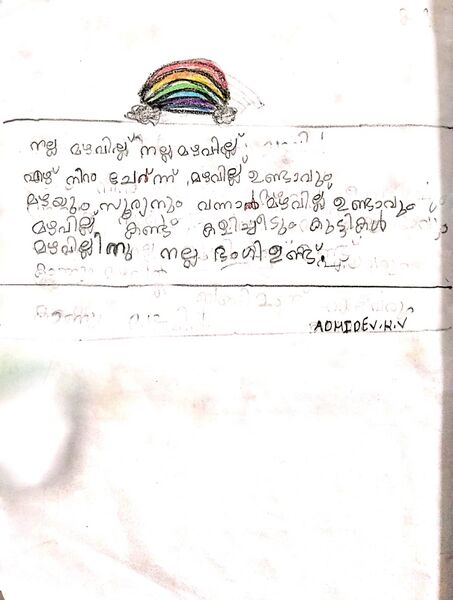 നല്ല മഴവില്ല് നല്ല മഴവില്ല്
ഏഴ് നിറം ചേർന്ന് മഴവില്ല് ഉണ്ടാവും
മഴയും സൂര്യനും വന്നാൽ മഴവില്ല് ഉണ്ടാവും
മഴവില്ല് കണ്ട് കളിച്ചീടും കുട്ടികൾ
മഴവില്ലിനു നല്ല ഭംഗി ഉണ്ട്
ADHIDEV.K.V